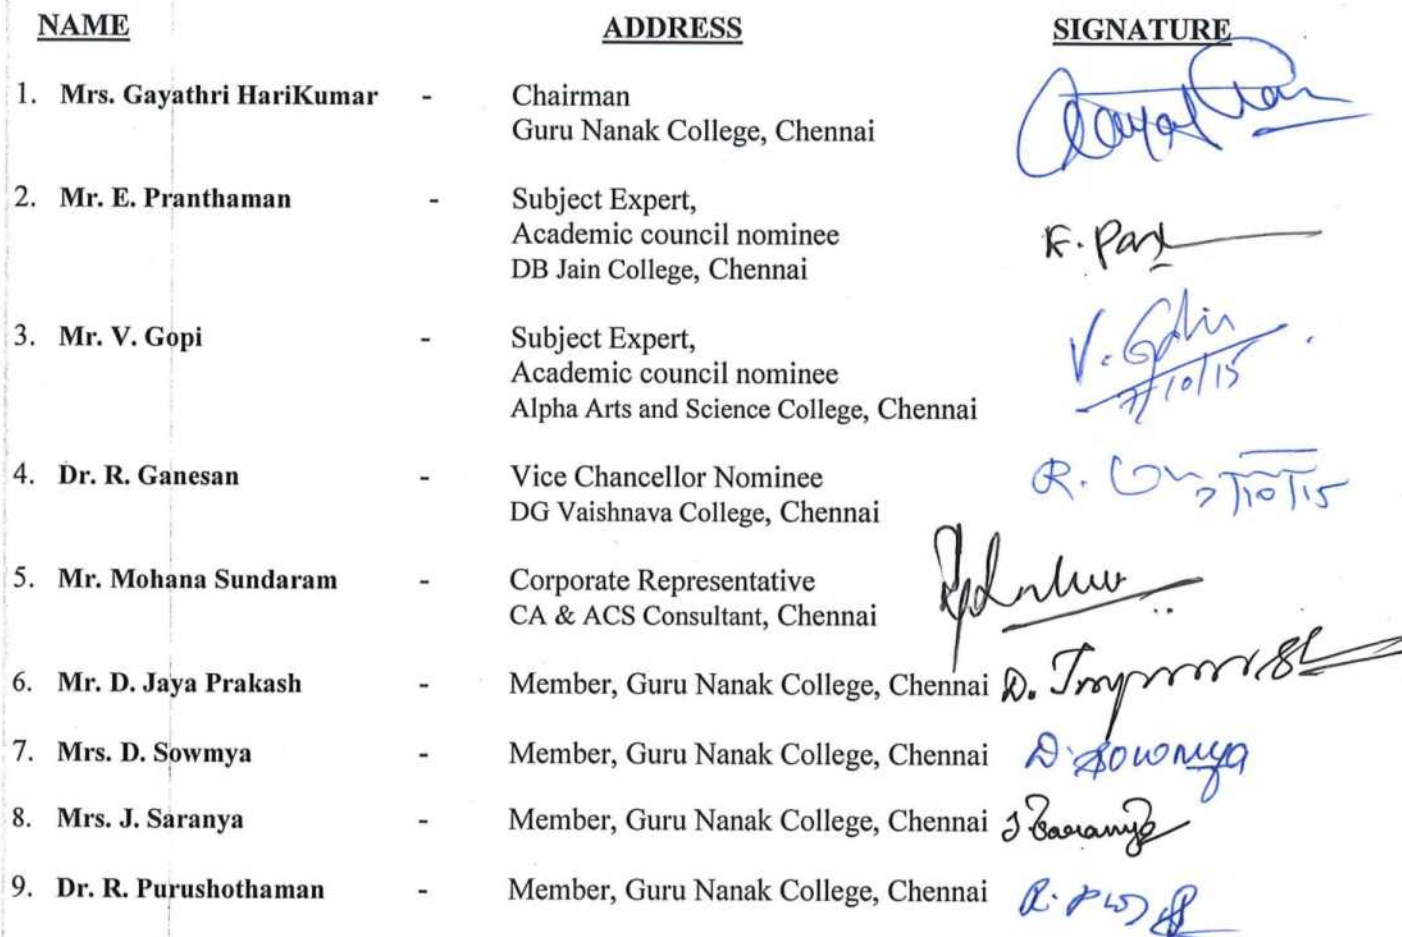 NAME ADDRESS SIGNATURE
1. Mrs. Gayathri HariKumar - Chairman
Guru Nanak College, Chennai
2. Mr. E. Pranthaman - Subject Expert,
Academic council nominee
DB Jain College, Chennai
3. Mr. V. Gopi - Subject Expert, V. Gopi
Academic council nominee 7/10/15
Alpha Arts and Science College, Chennai
4. Dr. R. Ganesan - Vice Chancellor Nominee R. 7/10/15
DG Vaishnava College, Chennai
5. Mr. Mohana Sundaram - Corporate Representative
CA & ACS Consultant, Chennai
6. Mr. D. Jaya Prakash - Member, Guru Nanak College, Chennai D.
7. Mrs. D. Sowmya - Member, Guru Nanak College, Chennai D. Sowmya
8. Mrs. J. Saranya - Member, Guru Nanak College, Chennai J Saranya
9. Dr. R. Purushothaman - Member, Guru Nanak College, Chennai R.